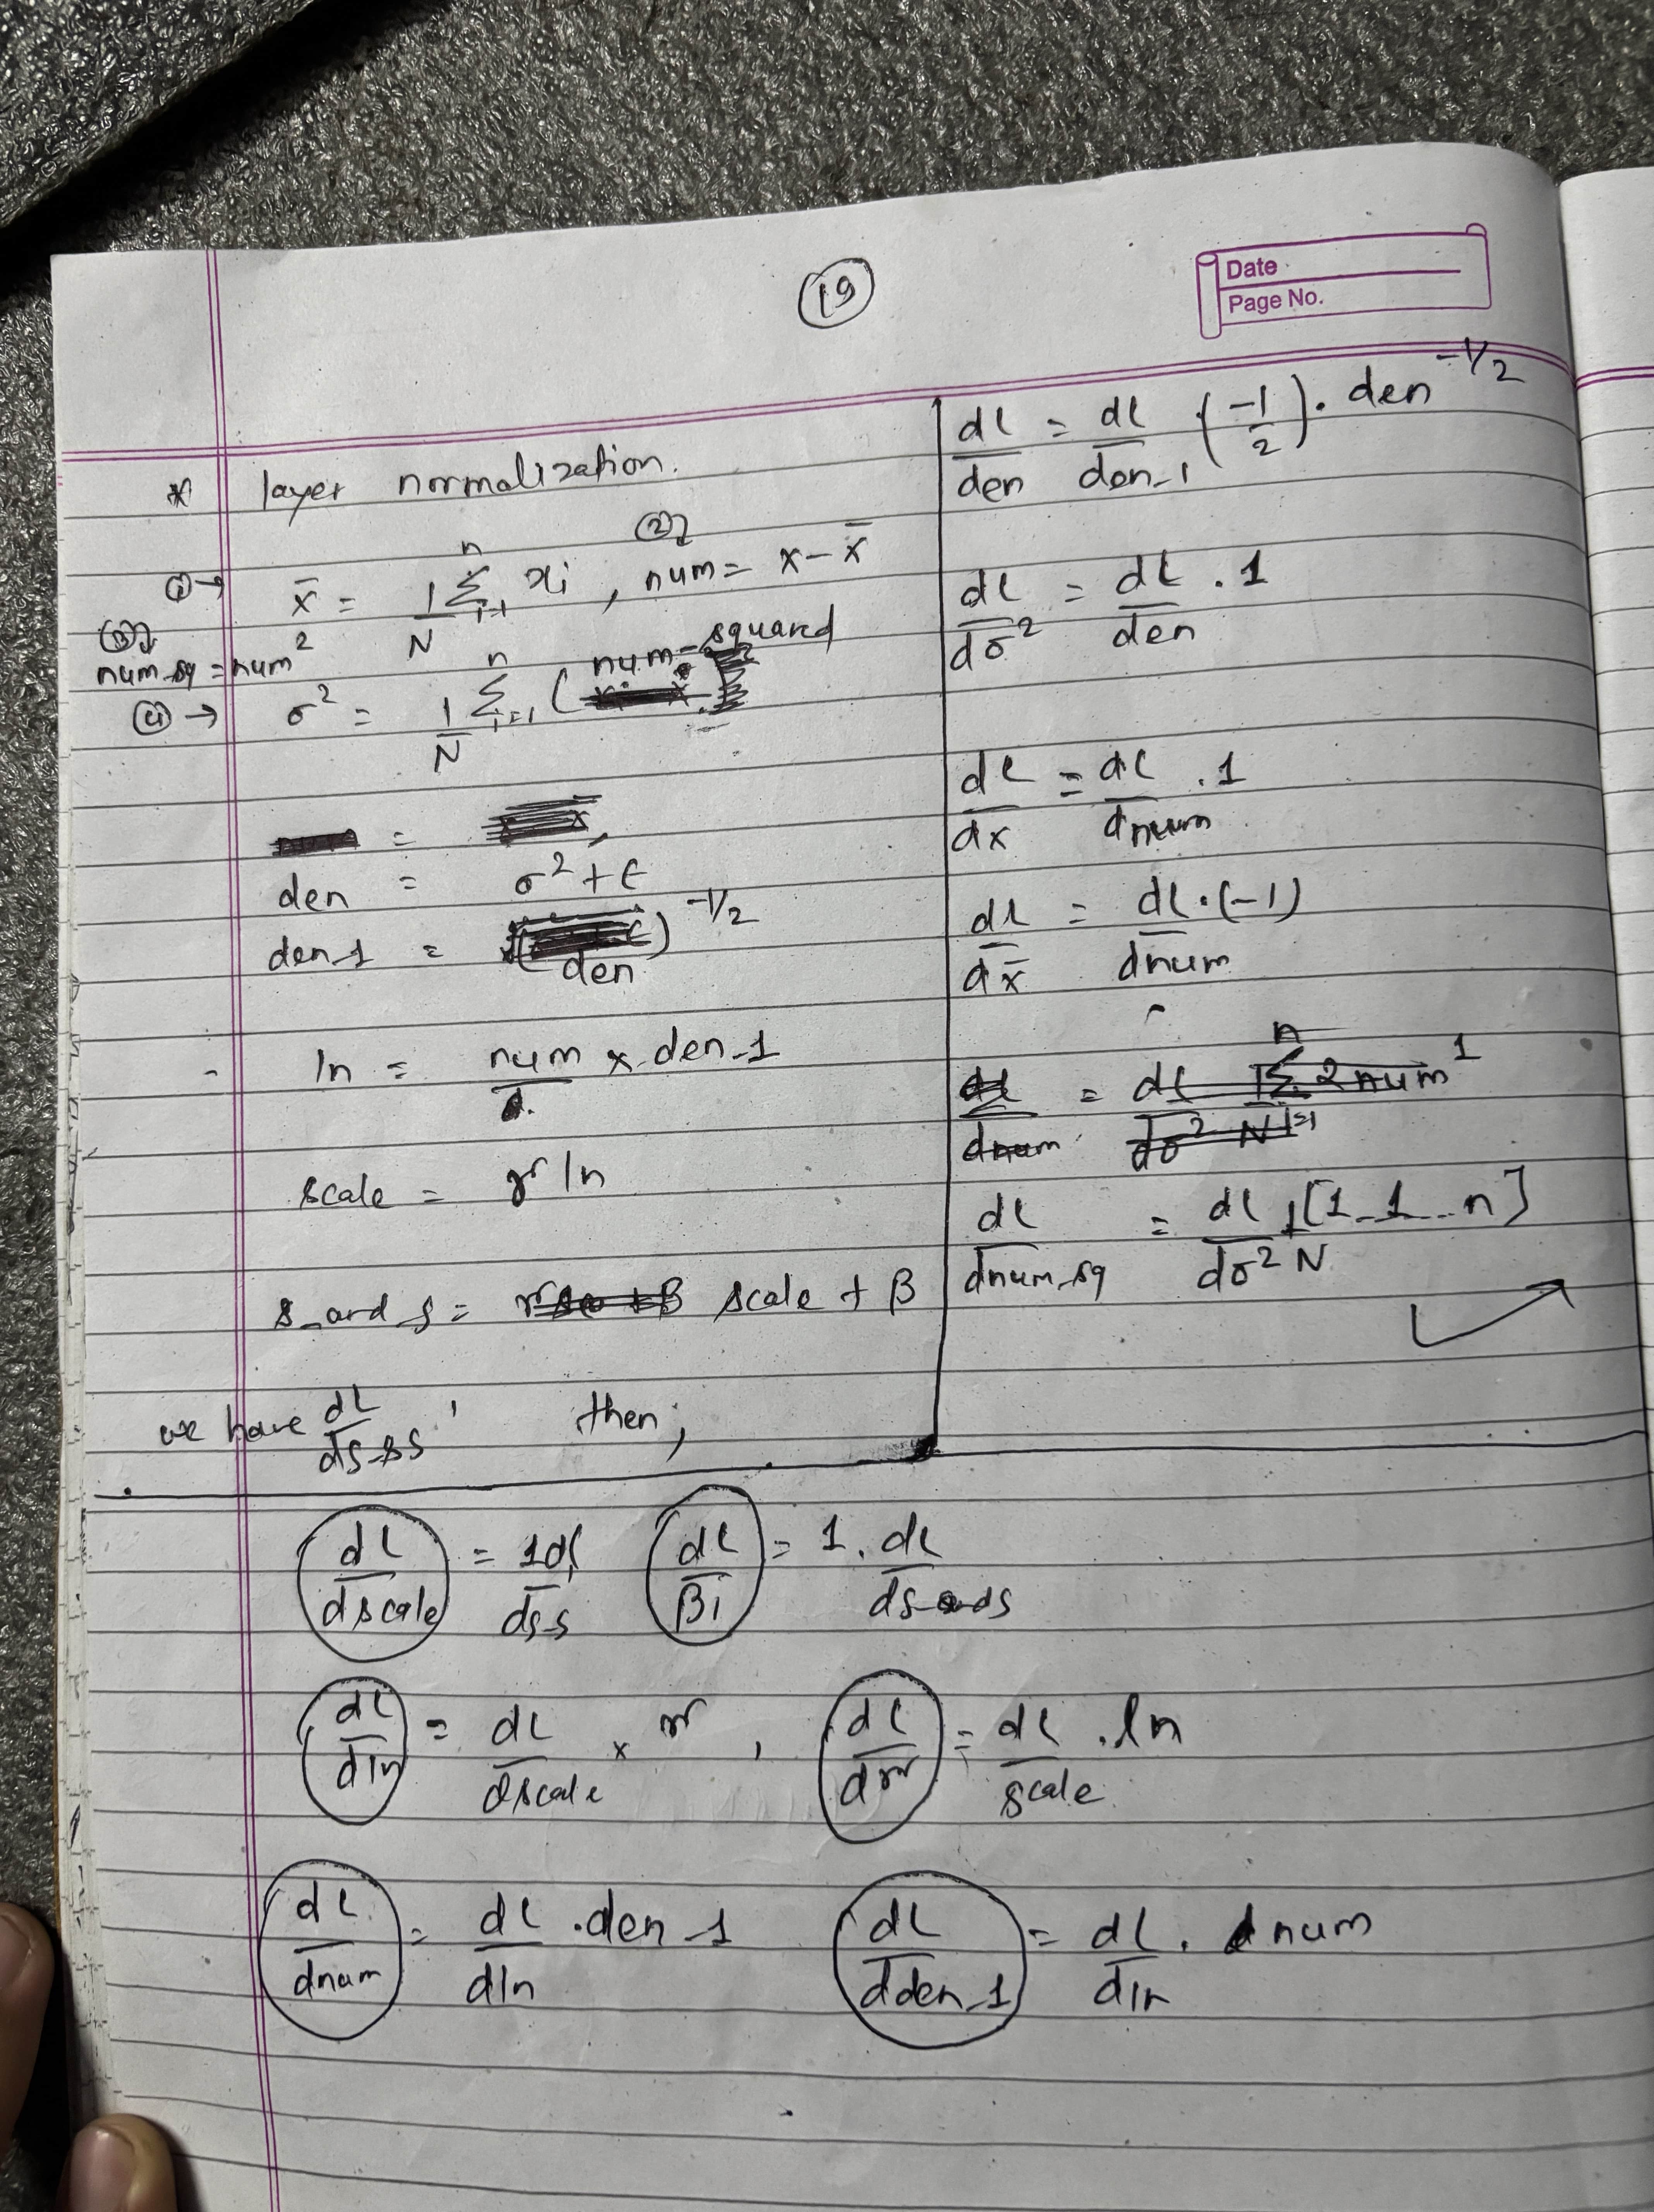 19
Date
Page No.
* layer normalization.
①→ x̄ = 1/N Σ_{i=1}^{n} xi , ②] num = x - x̄
③] num_sq = num²
④→ σ² = 1/N Σ_{i=1}^{n} (num_squared
den = σ² + ϵ
den_1 = (den)^{-1/2}
ln = num × den_1
scale = γ ln
s_and_s = scale + β
we have dL/ds_ss , then,
dL/den = dL/den_1 · (-1/2) · den^{-1/2}
dL/dσ² = dL/den . 1
dL/dx = dL/dnum . 1
dL/dx̄ = dL/dnum · (-1)
dL/dnum = dL/dσ² 1/N Σ_{i=1}^{n} 2num¹
dL/dnum_sq = dL/dσ² 1/N [1_1...n]
dL/dscale = 1dL/ds_s dL/βi = 1. dL/ds_ands
dL/dln = dL/dscale × γ , dL/dγ = dL/scale . ln
dL/dnum = dL/dln · den_1 dL/dden_1 = dL/dln . num